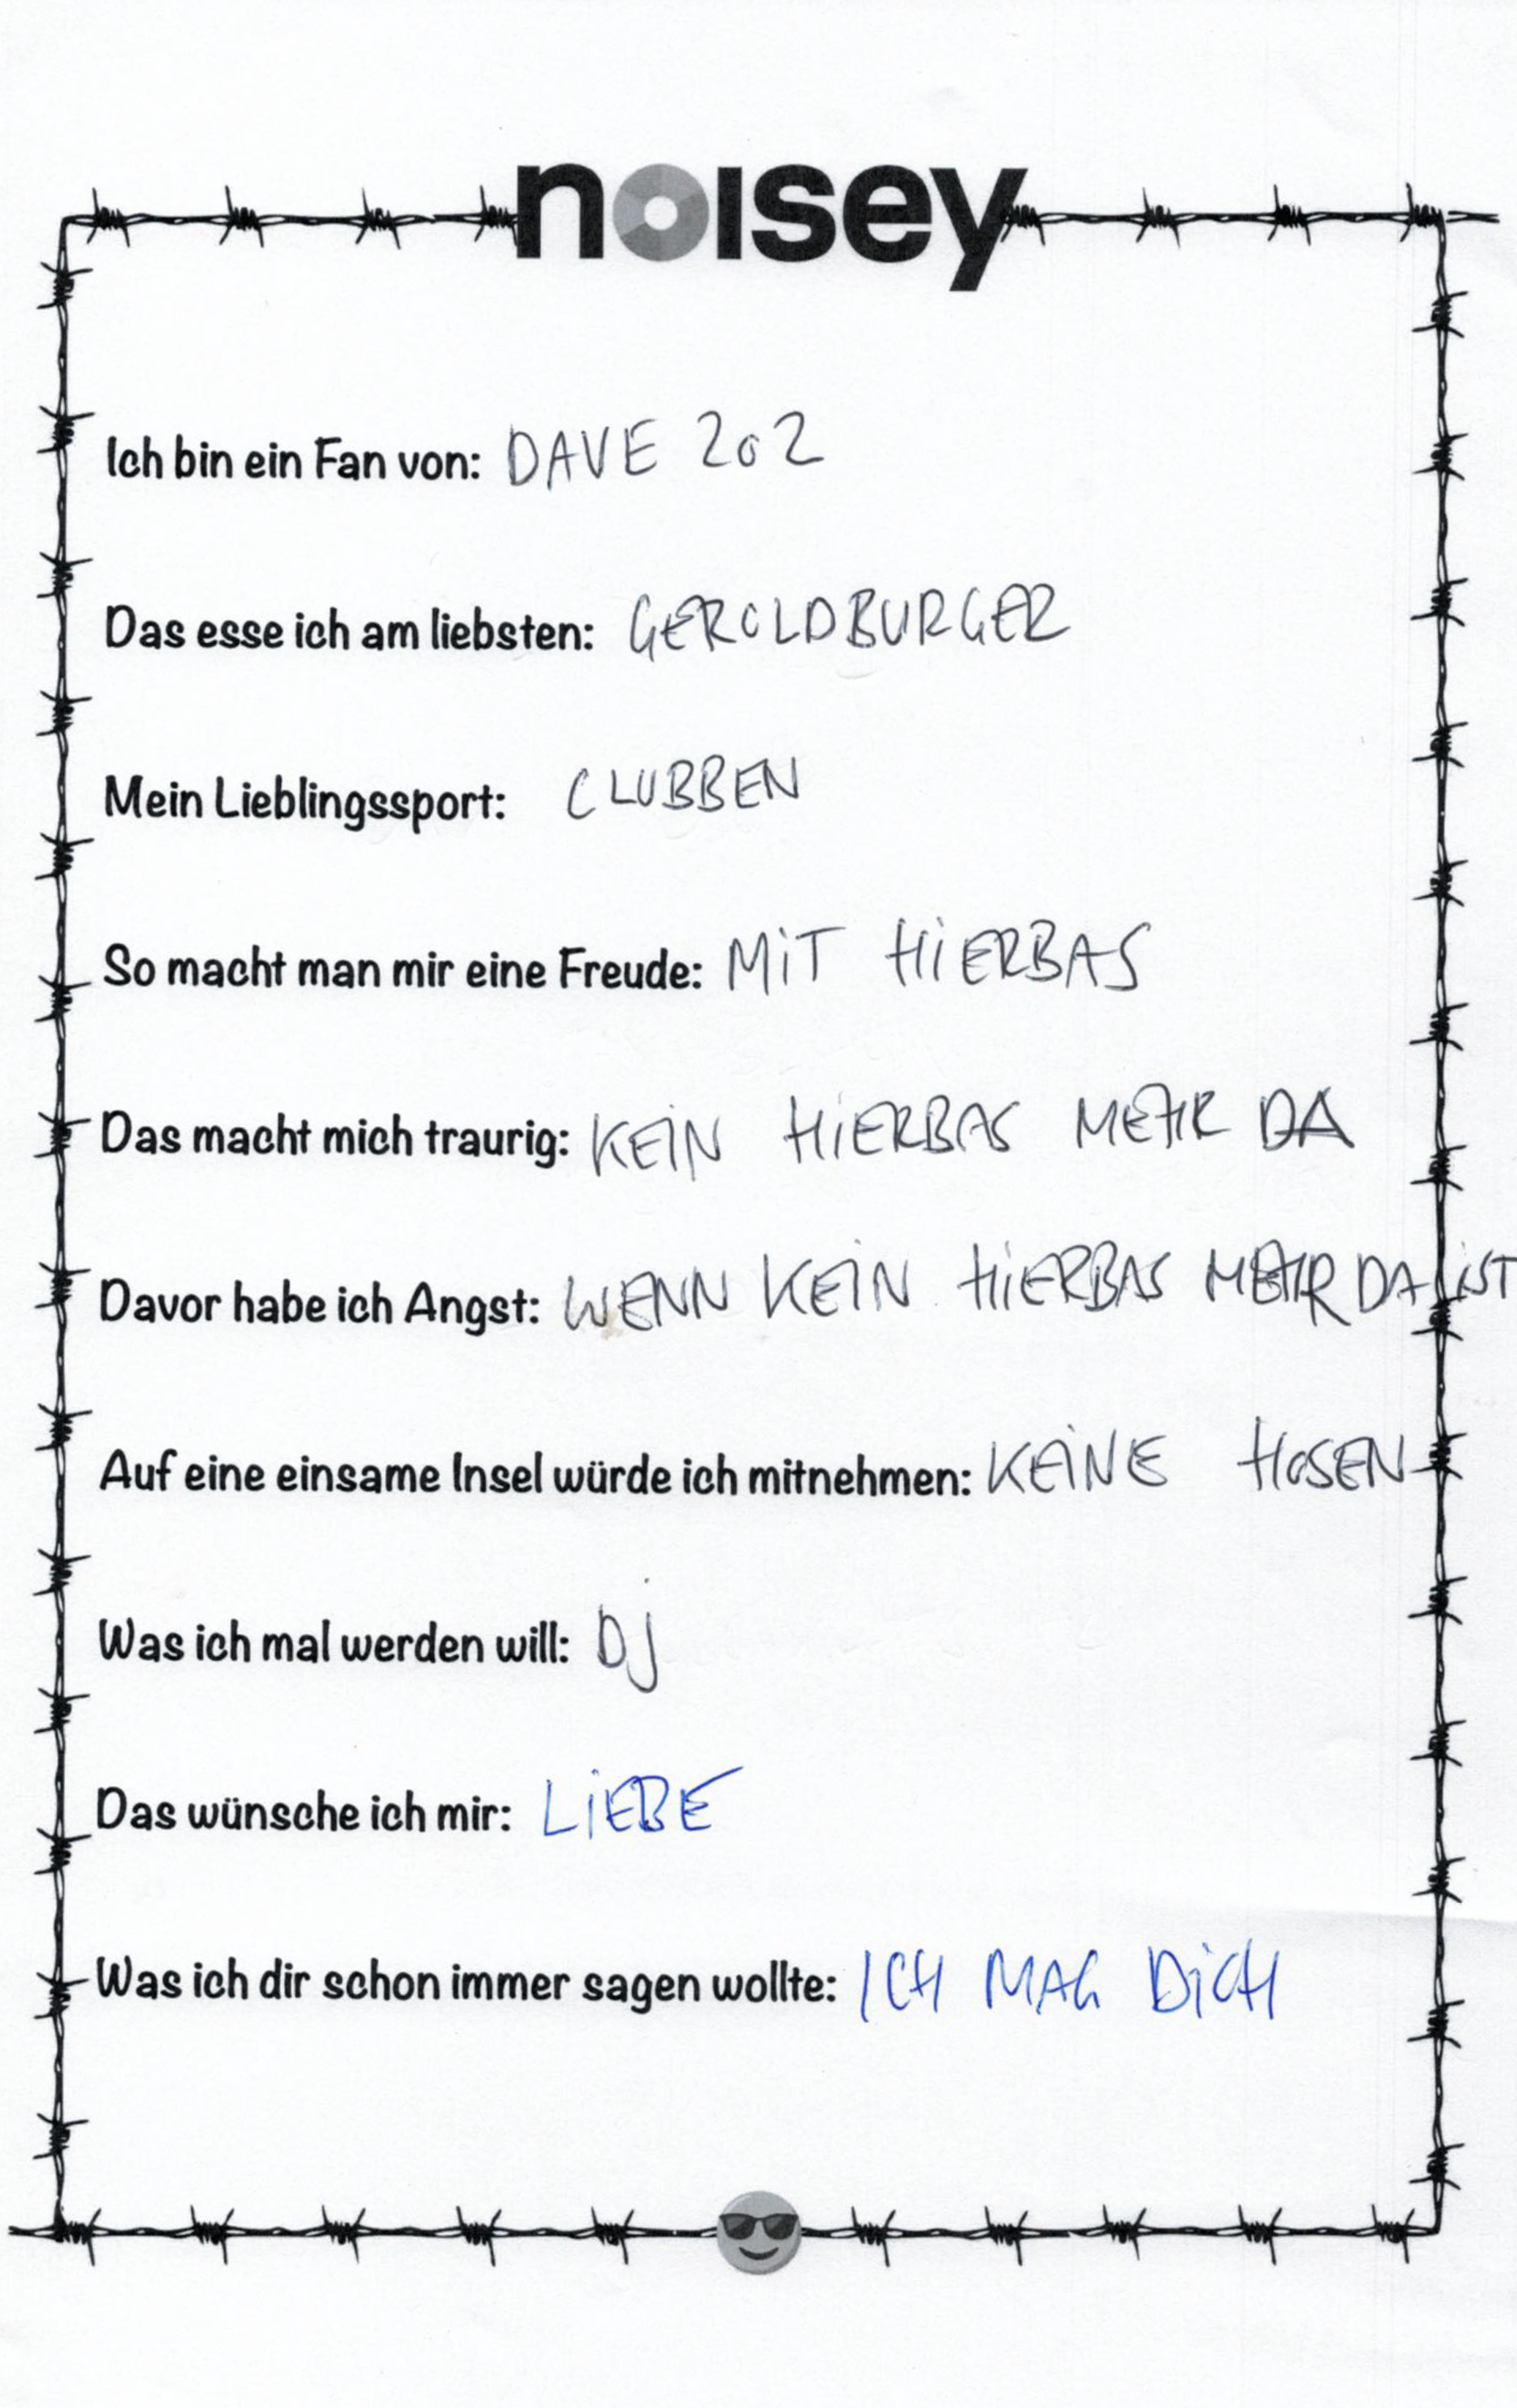 noisey
Ich bin ein Fan von: DAVE 202
Das esse ich am liebsten: GEROLDBURGER
Mein Lieblingssport: CLUBBEN
So macht man mir eine Freude: MiT HiERBAS
Das macht mich traurig: KEiN HiERBAS MEHR DA
Davor habe ich Angst: WENN KEiN HiERBAS MEHR DA iST
Auf eine einsame Insel würde ich mitnehmen: KEiNE HOSEN
Was ich mal werden will: Dj
Das wünsche ich mir: LiEBE
Was ich dir schon immer sagen wollte: ICH MAG DiCH